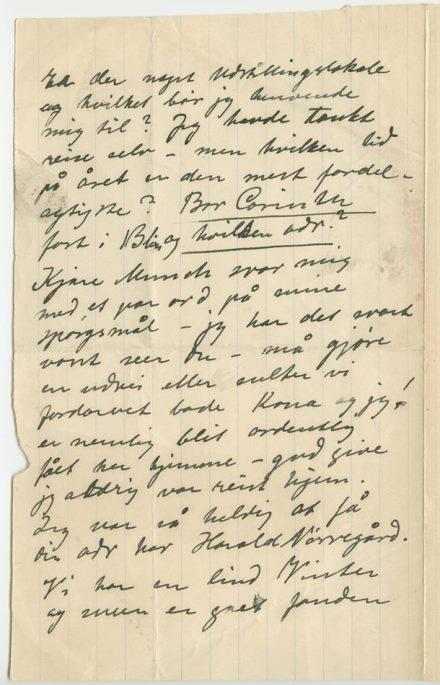 Er der noget Udstillingslokale
og hvilket bør jeg henvende
mig til? Jeg havde tænkt
reise selv – men hvilken tid
på året er den mest fordel-
agtigste? Bor Corinth
fort i Blin og hvilken adr.?
Kjære Munch svar mig
med et par ord på mine
spørgsmål – jeg har det svært
vont seer Du – må gjøre
en udvei eller sulter vi
fordærvet både Kona og jeg!
er nemlig blit ordentlig
fået her hjemme – gud give
jeg aldrig var reist hjem.
Jeg var så heldig at få
din adr hos Harald Nörregård.
Vi har en lind Vinter
og snuen er gået fanden